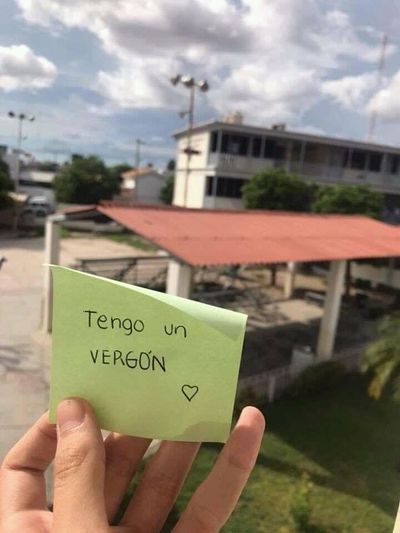 Tengo un
VERGÓN
♡